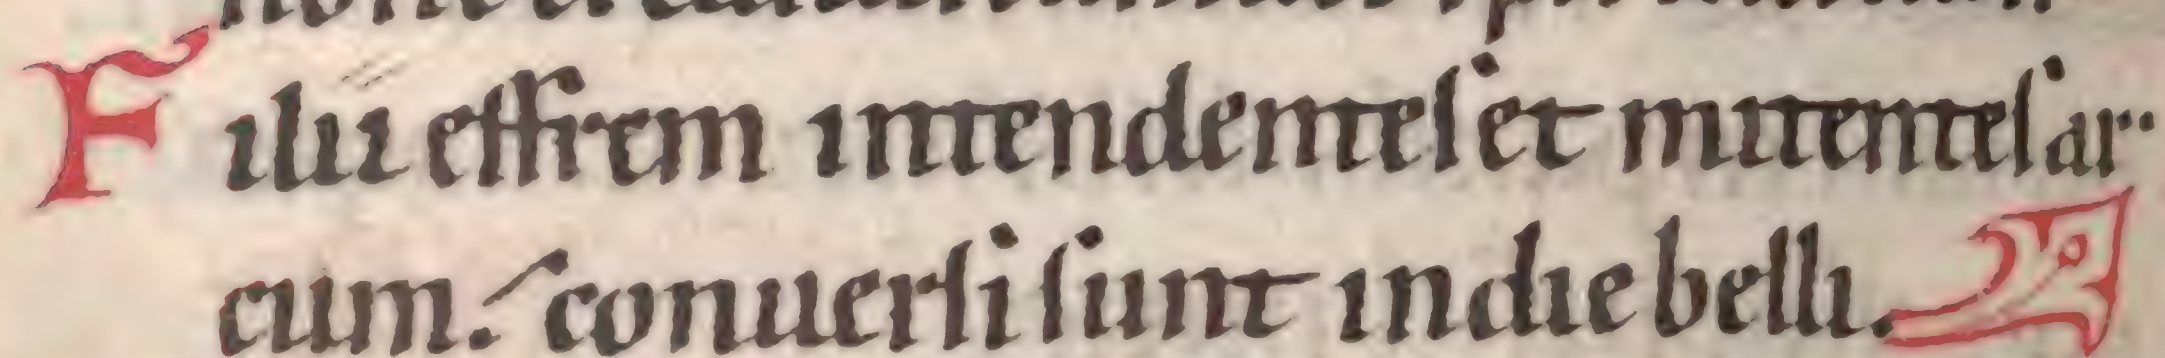 Filii effrem intendentes et mittentes ar-
cum. conuersi sunt in die belli.